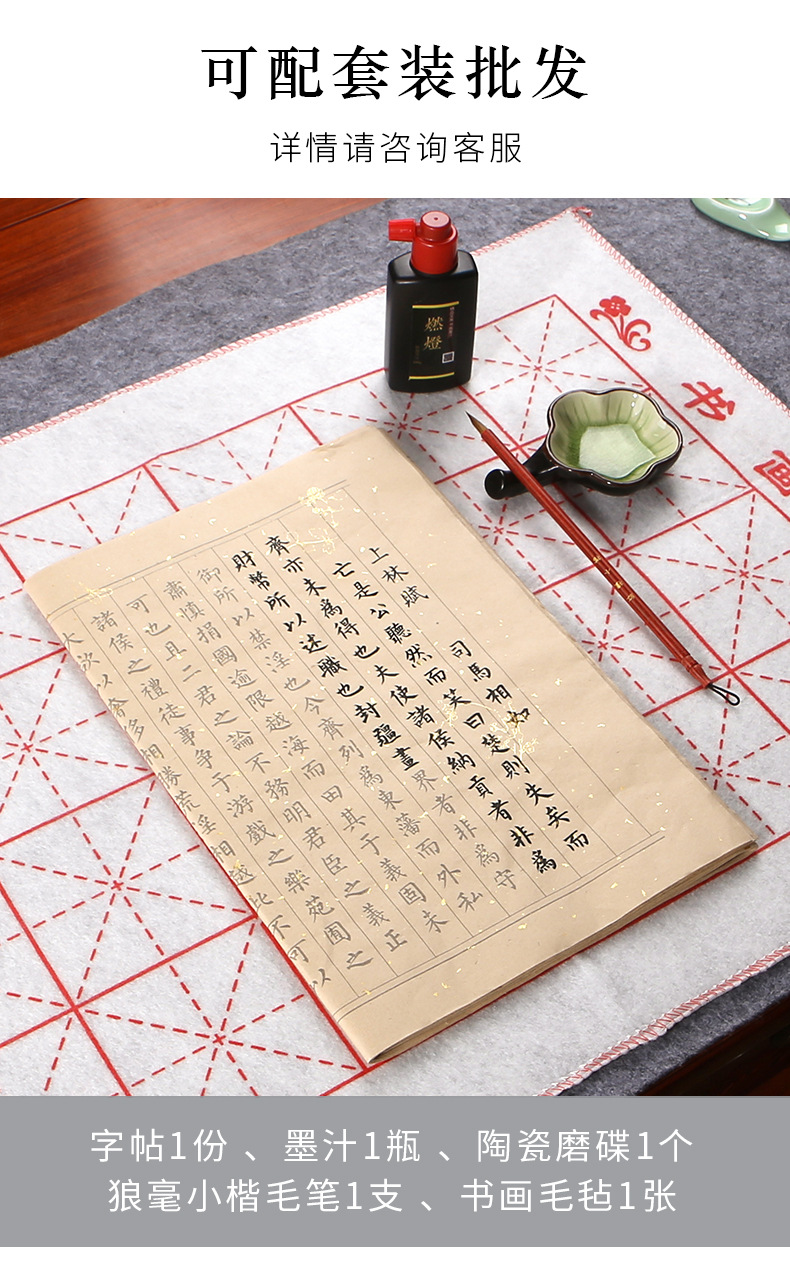 可配套装批发
详情请咨询客服
燃燈
书画
上林賦 司馬相如
亡是公聽然而笑曰楚則失矣而
齊亦未為得也夫使諸侯納貢者非為
財幣所以述職也封疆畫界者非為守
御所以禁淫也今齊列為東藩而外私
肅慎捐國逾限越海而田其于義固未
可也且二君之論不務明君臣之義正
諸侯之禮徒事爭于游戲之樂苑囿之
大欲以奢侈相勝荒淫相越此不可以
字帖1份 、墨汁1瓶 、陶瓷磨碟1个
狼毫小楷毛笔1支 、书画毛毡1张